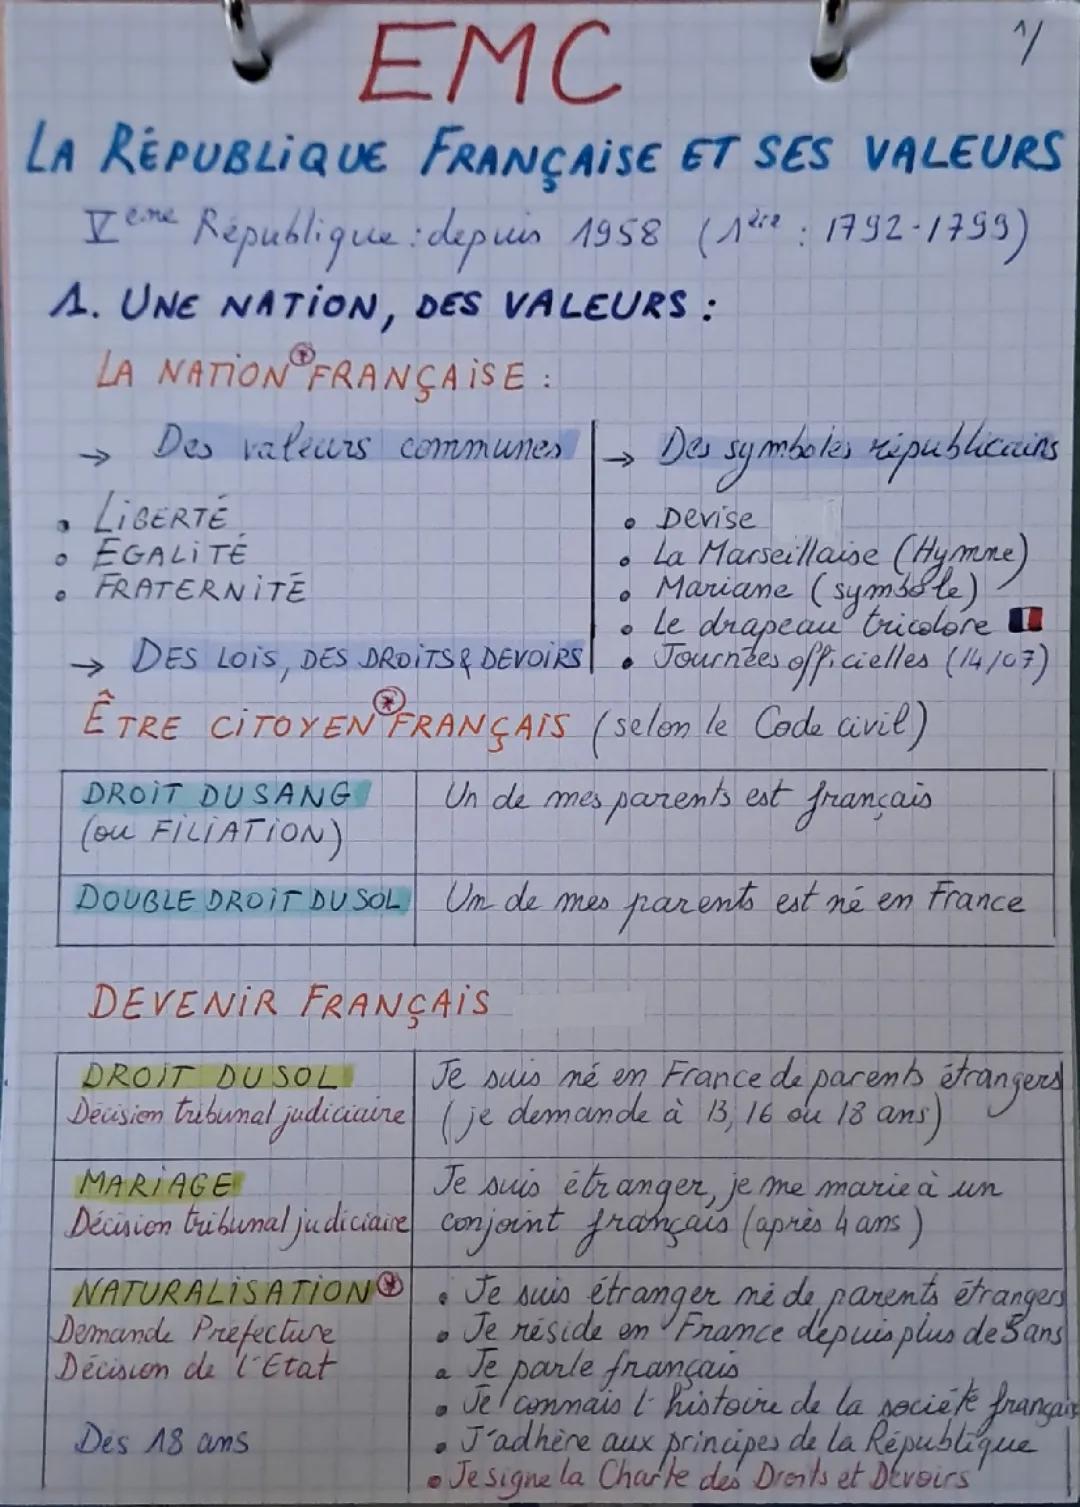 EMC
1/
LA RÉPUBLIQUE FRANÇAISE ET SES VALEURS
Vème République : depuis 1958 (1ère : 1792-1799)
1. UNE NATION, DES VALEURS :
LA NATION* FRANÇAISE :
→ Des valeurs communes
• LIBERTÉ
• EGALITÉ
• FRATERNITÉ
→ DES LOIS, DES DROITS & DEVOIRS
→ Des symboles républicains
• Devise
• La Marseillaise (Hymne)
• Mariane (symbole)
• Le drapeau tricolore 🇫🇷
• Journées officielles (14/07)
ÊTRE CITOYEN* FRANÇAIS (selon le Code civil)
DROIT DU SANG
(ou FILIATION)
Un de mes parents est français
DOUBLE DROIT DU SOL
Un de mes parents est né en France
DEVENIR FRANÇAIS
DROIT DU SOL
Décision tribunal judiciaire
Je suis né en France de parents étrangers
(je demande à 13, 16 ou 18 ans)
MARIAGE
Décision tribunal judiciaire
Je suis étranger, je me marie à un
conjoint français (après 4 ans)
NATURALISATION*
Demande Préfecture
Décision de l'Etat
Dès 18 ans
• Je suis étranger né de parents étrangers
• Je réside en France depuis plus de 5 ans
• Je parle français
• Je connais l'histoire de la société français
• J'adhère aux principes de la République
• Je signe la Charte des Droits et Devoirs